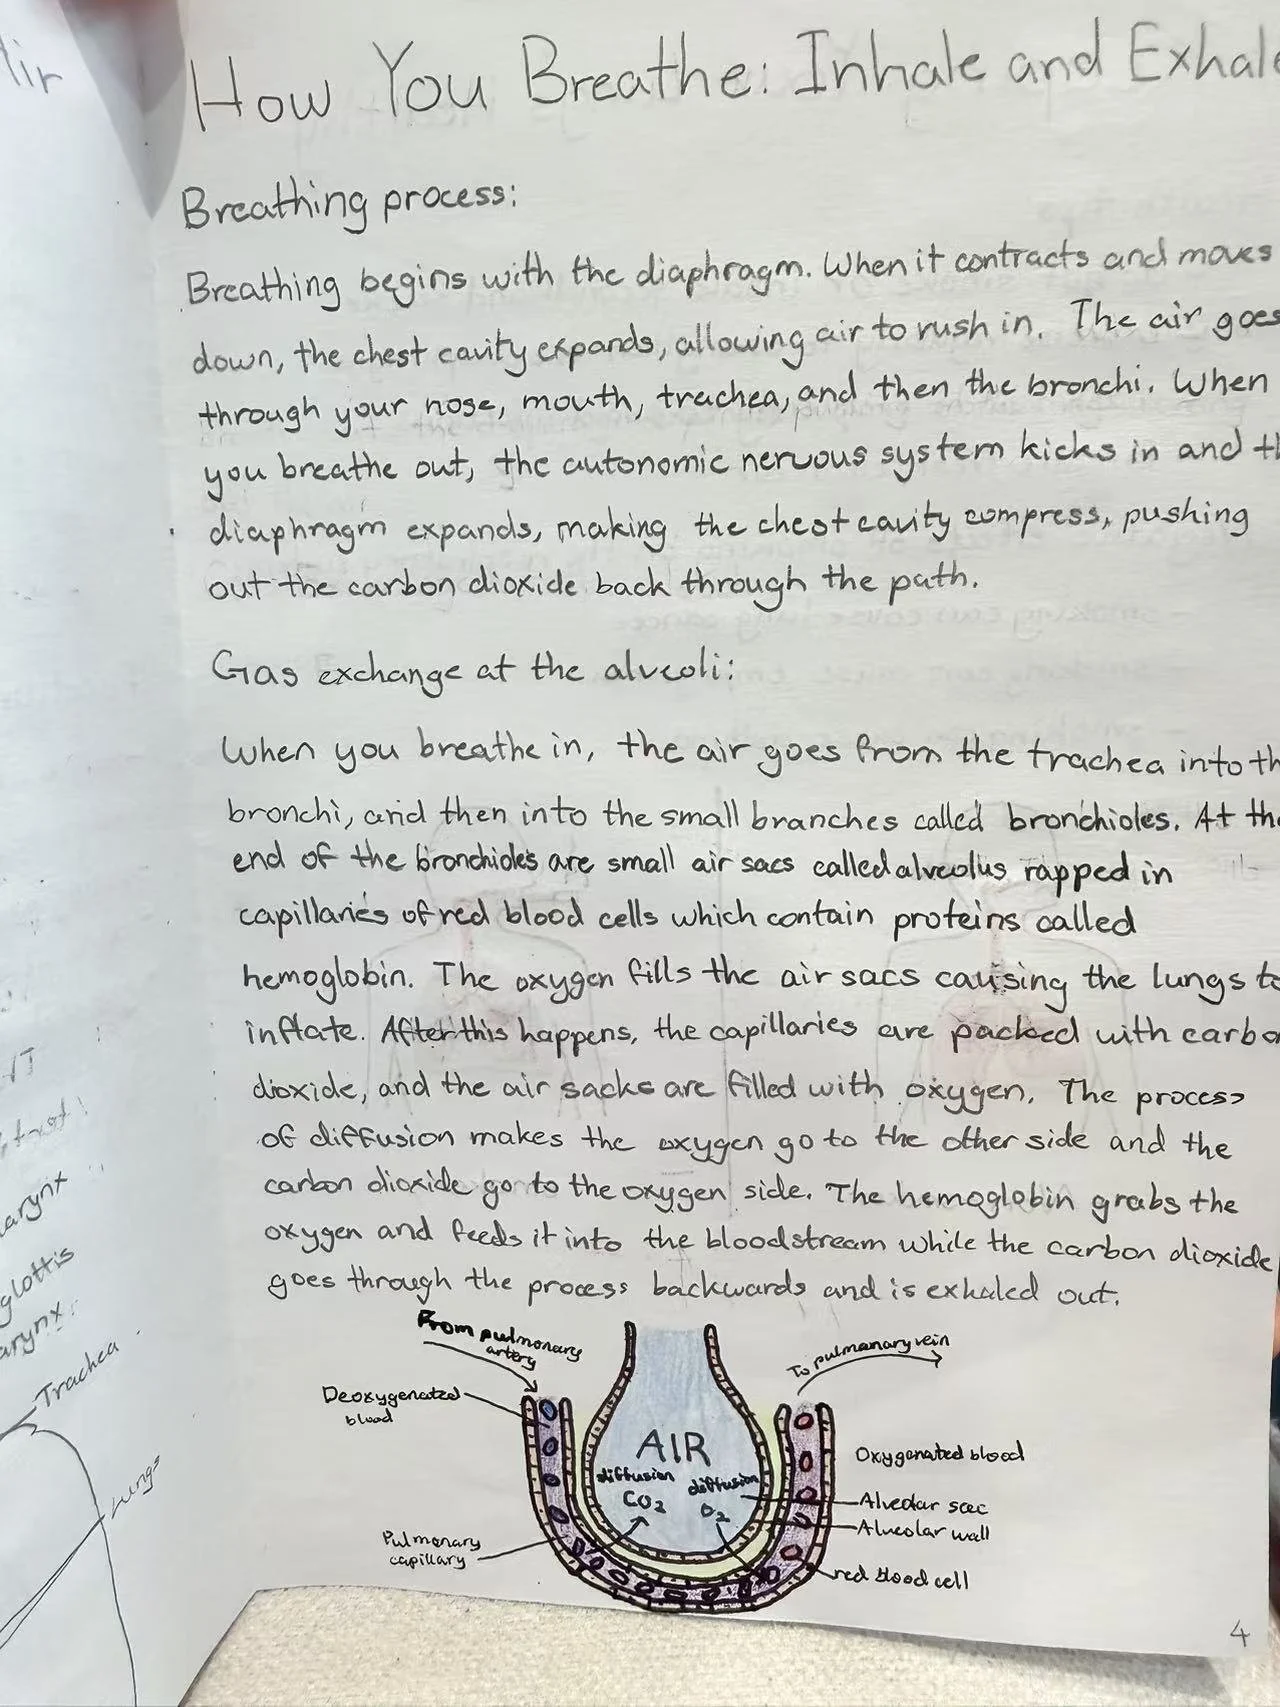 How You Breathe: Inhale and Exhale
Breathing process:
Breathing begins with the diaphragm. When it contracts and moves
down, the chest cavity expands, allowing air to rush in. The air goes
through your nose, mouth, trachea, and then the bronchi. When
you breathe out, the autonomic nervous system kicks in and th
diaphragm expands, making the chest cavity compress, pushing
out the carbon dioxide back through the path.
Gas exchange at the alveoli:
When you breathe in, the air goes from the trachea into th
bronchi, and then into the small branches called bronchioles. At the
end of the bronchioles are small air sacs called alveolus rapped in
capillaries of red blood cells which contain proteins called
hemoglobin. The oxygen fills the air sacs causing the lungs to
inflate. After this happens, the capillaries are packed with carbo
dioxide, and the air sacks are filled with oxygen. The process
of diffusion makes the oxygen go to the other side and the
carbon dioxide go to the oxygen side. The hemoglobin grabs the
oxygen and feeds it into the bloodstream while the carbon dioxide
goes through the process backwards and is exhaled out.
From pulmonary
artery
To pulmonary vein
Deoxygenated
blood
AIR
diffusion
CO2
diffusion
O2
Oxygenated blood
Alveolar sac
Alveolar wall
Pulmonary
capillary
red blood cell
4
arynx
glottis
arynx
Trachea
Lungs